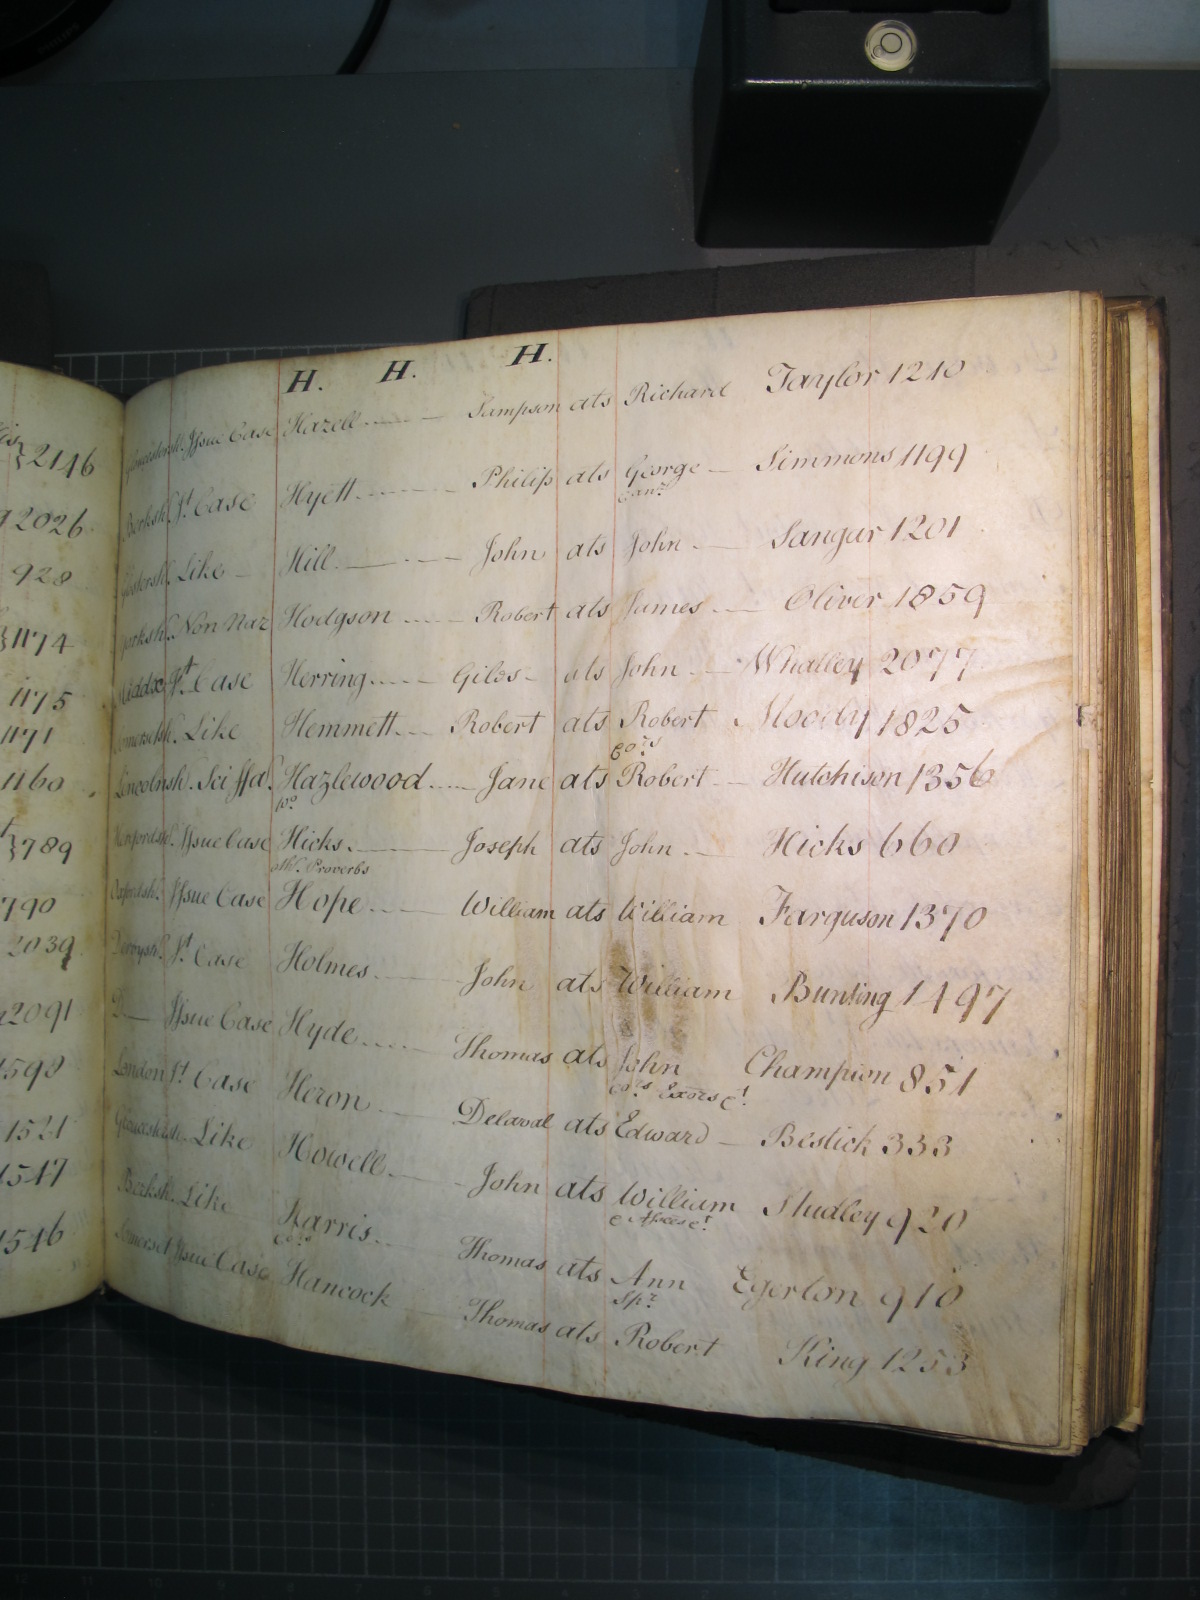 H. H. H.
Issue Case Hazell Sampson ats Richard Taylor 1210
Berksh. Jt. Case Hyett Philip ats George Simmons 1199
Like Hill John ats John Sangar 1201
Yorksh. Non Naz Hodgson Robert ats James Oliver 1859
Middx Jt. Case Herring Giles ats John Whalley 2077
Somersetsh. Like Hemmett Robert ats Robert Moody 1825
Lincolnsh. Sci ffa. Hazlewood Jane ats Robert Hutchison 1356
Issue Case Hicks Joseph ats John Hicks 660
Proverbs
Oxfordsh. Issue Case Hope William ats William Farguson 1370
Derbysh. Jt. Case Holmes John ats William Bunting 1497
D Issue Case Hyde Thomas ats John Champion 851
London Jt. Case Heron Delaval ats Edward Bestick 333
Like Howell John ats William Studley 920
Berksh. Like Harris Thomas ats Ann Egerton 910
Spr.
Somerset Issue Case Hancock Thomas ats Robert King 1253
2146
2026
928
1174
1175
1171
1160
789
790
2039
2091
1521
1547
1546